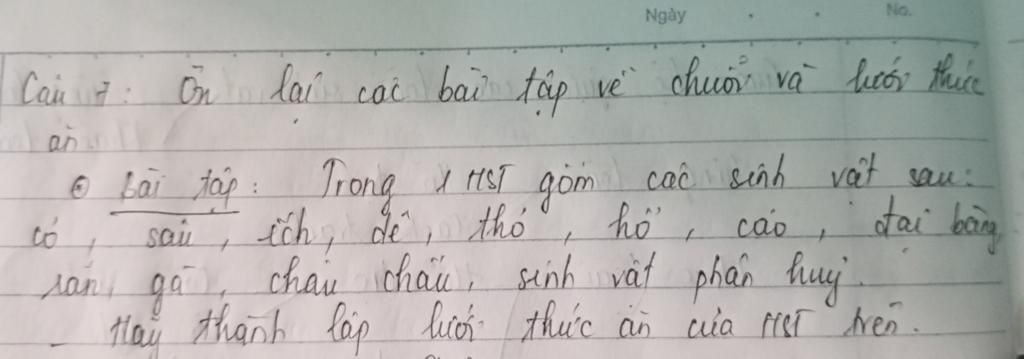 Ngày No.
Câu 7: Ôn lại các bài tập về chuỗi và lưới thức
ăn
bài tập: Trong 1 HST gồm các sinh vật sau:
cỏ, sâu, ếch, dê, thỏ, hổ, cáo, đại bàng,
rắn, gà, châu chấu, sinh vật phân huỷ.
- Hãy thành lập lưới thức ăn của HST trên.